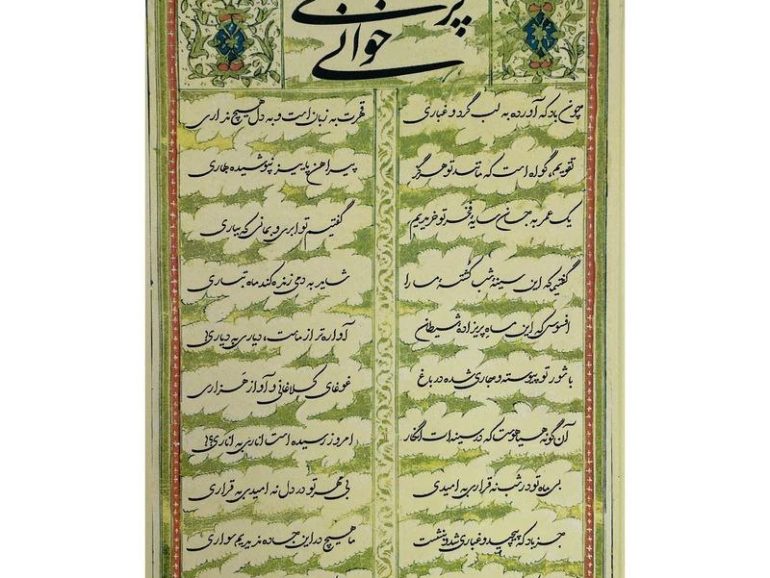 پری
خوانی
چون باد که آورده به لب گرد و غباری قهرت به زبان است و به دل هیچ نداری
تقویم، گواه است که مانند تو هرگز پیراهن پاییز نپوشیده بهاری
یک عمر به جان سایه فخر تو خریدیم گفتیم تو ابری و بمانی که بباری
گفتیم که این سینه شب کشته ما را شاید به دمی زنده کند ماه تباری
افسوس که این ماه پریزاده شیطان آواره تر از ماست، دیاری به دیاری
با شور تو پیوسته و جاری شده در باغ غوغای کلاغانی و آواز هزاری
آن گونه هیاهوست که در سینه ات انگار امروز رسیده است اناری به اناری
بی ماه تو در شب نه قراری به امیدی بی مهر تو در دل نه امیدی به قراری
جز باد که پیچید و غباری شد و ننشست ما هیچ در این جاده ندیدیم سواری